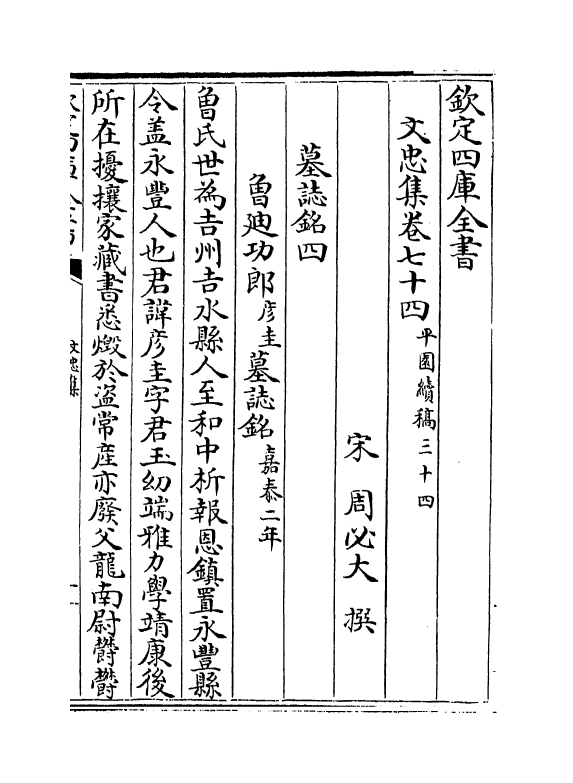 欽定四庫全書
文忠集卷七十四 平園續稿三十四
宋 周必大 撰
墓誌銘四
魯廸功郎彦圭墓誌銘 嘉泰二年
魯氏世為吉州吉水縣人至和中析報恩鎮置永豐縣
令盖永豐人也君諱彦圭字君玉幼端雅力學靖康後
所在擾攘家藏書悉燬於盗常産亦廢父龍南尉欝欝
文忠集
一